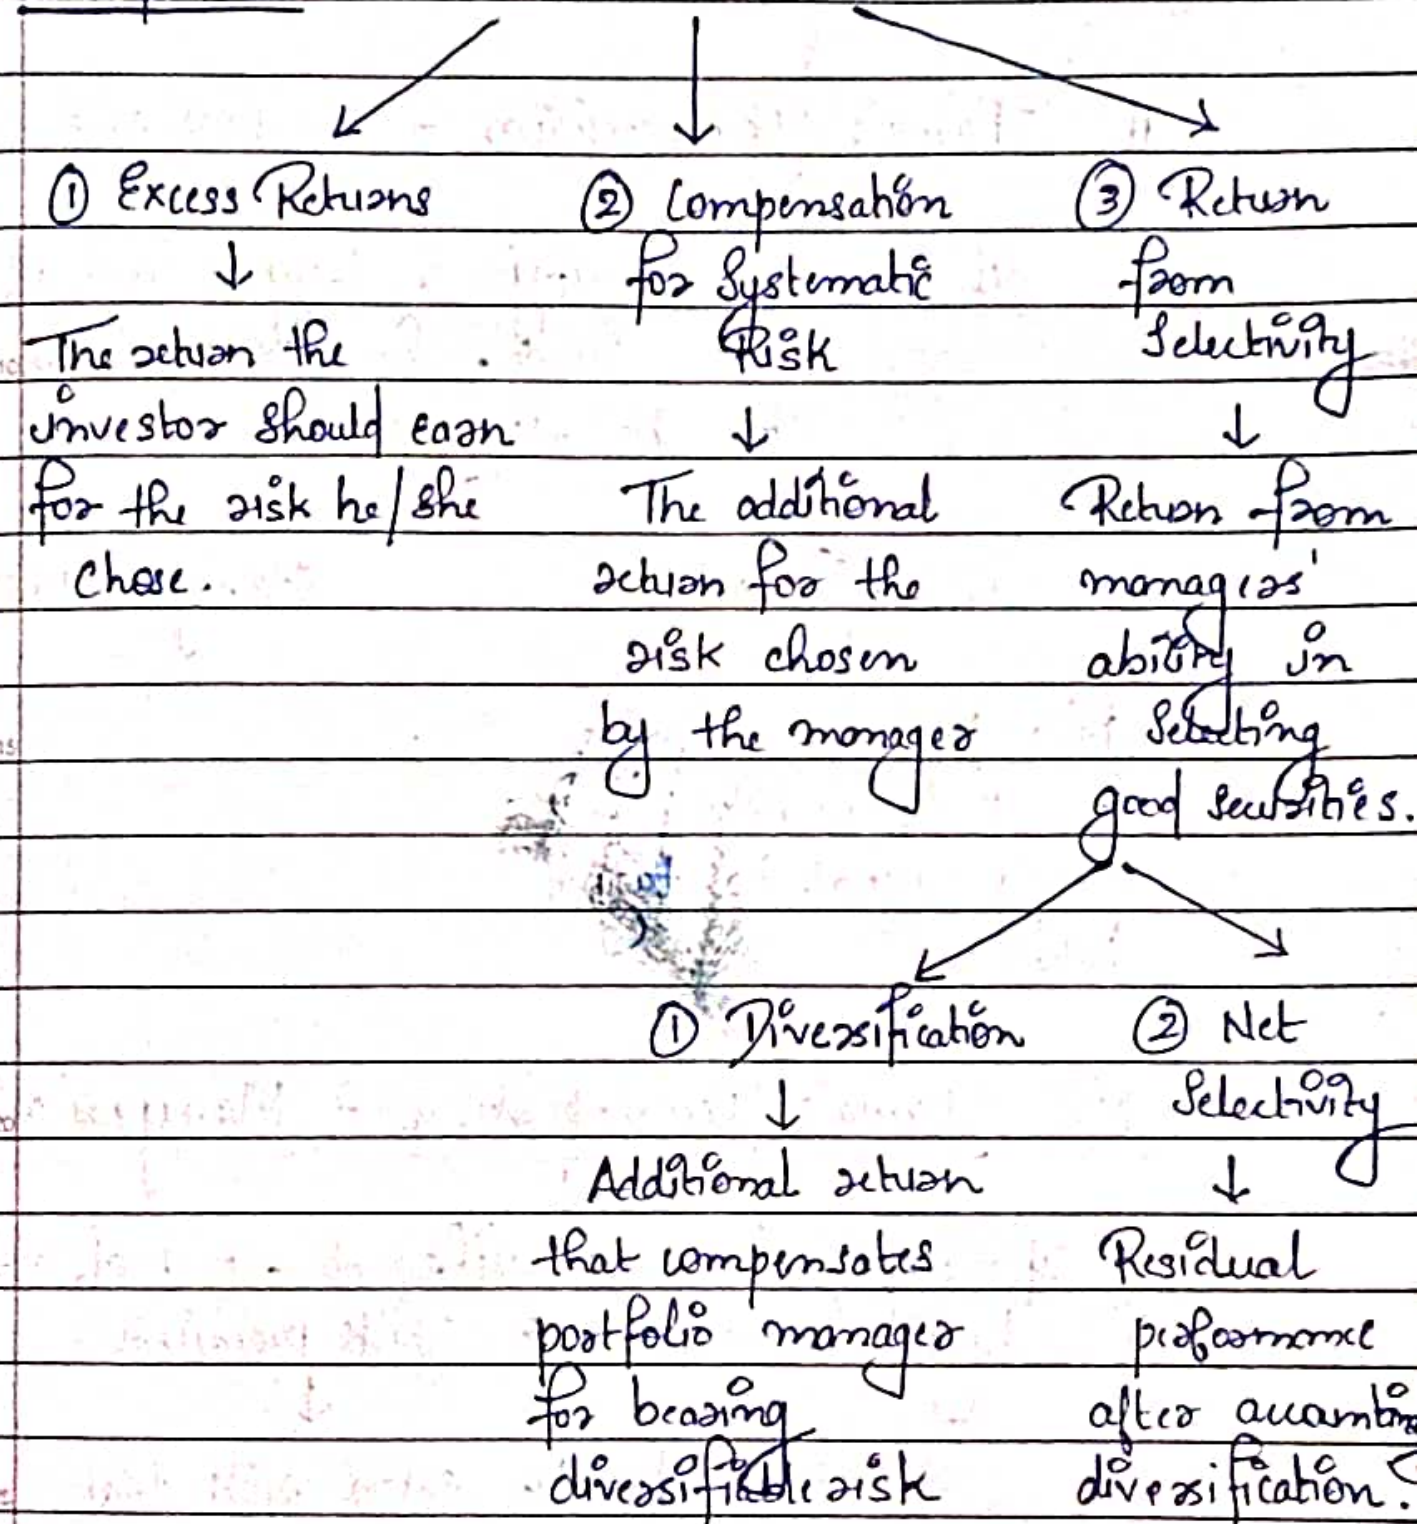 ① Excess Returns
↓
The return the
investor should earn
for the risk he/she
chose.
② Compensation
for Systematic
Risk
↓
The additional
return for the
risk chosen
by the manager
③ Return
from
Selectivity
↓
Return from
managers'
ability in
Selecting
good securities.
① Diversification
↓
Additional return
that compensates
portfolio manager
for bearing
diversifiable risk
② Net
Selectivity
↓
Residual
performance
after
diversification.